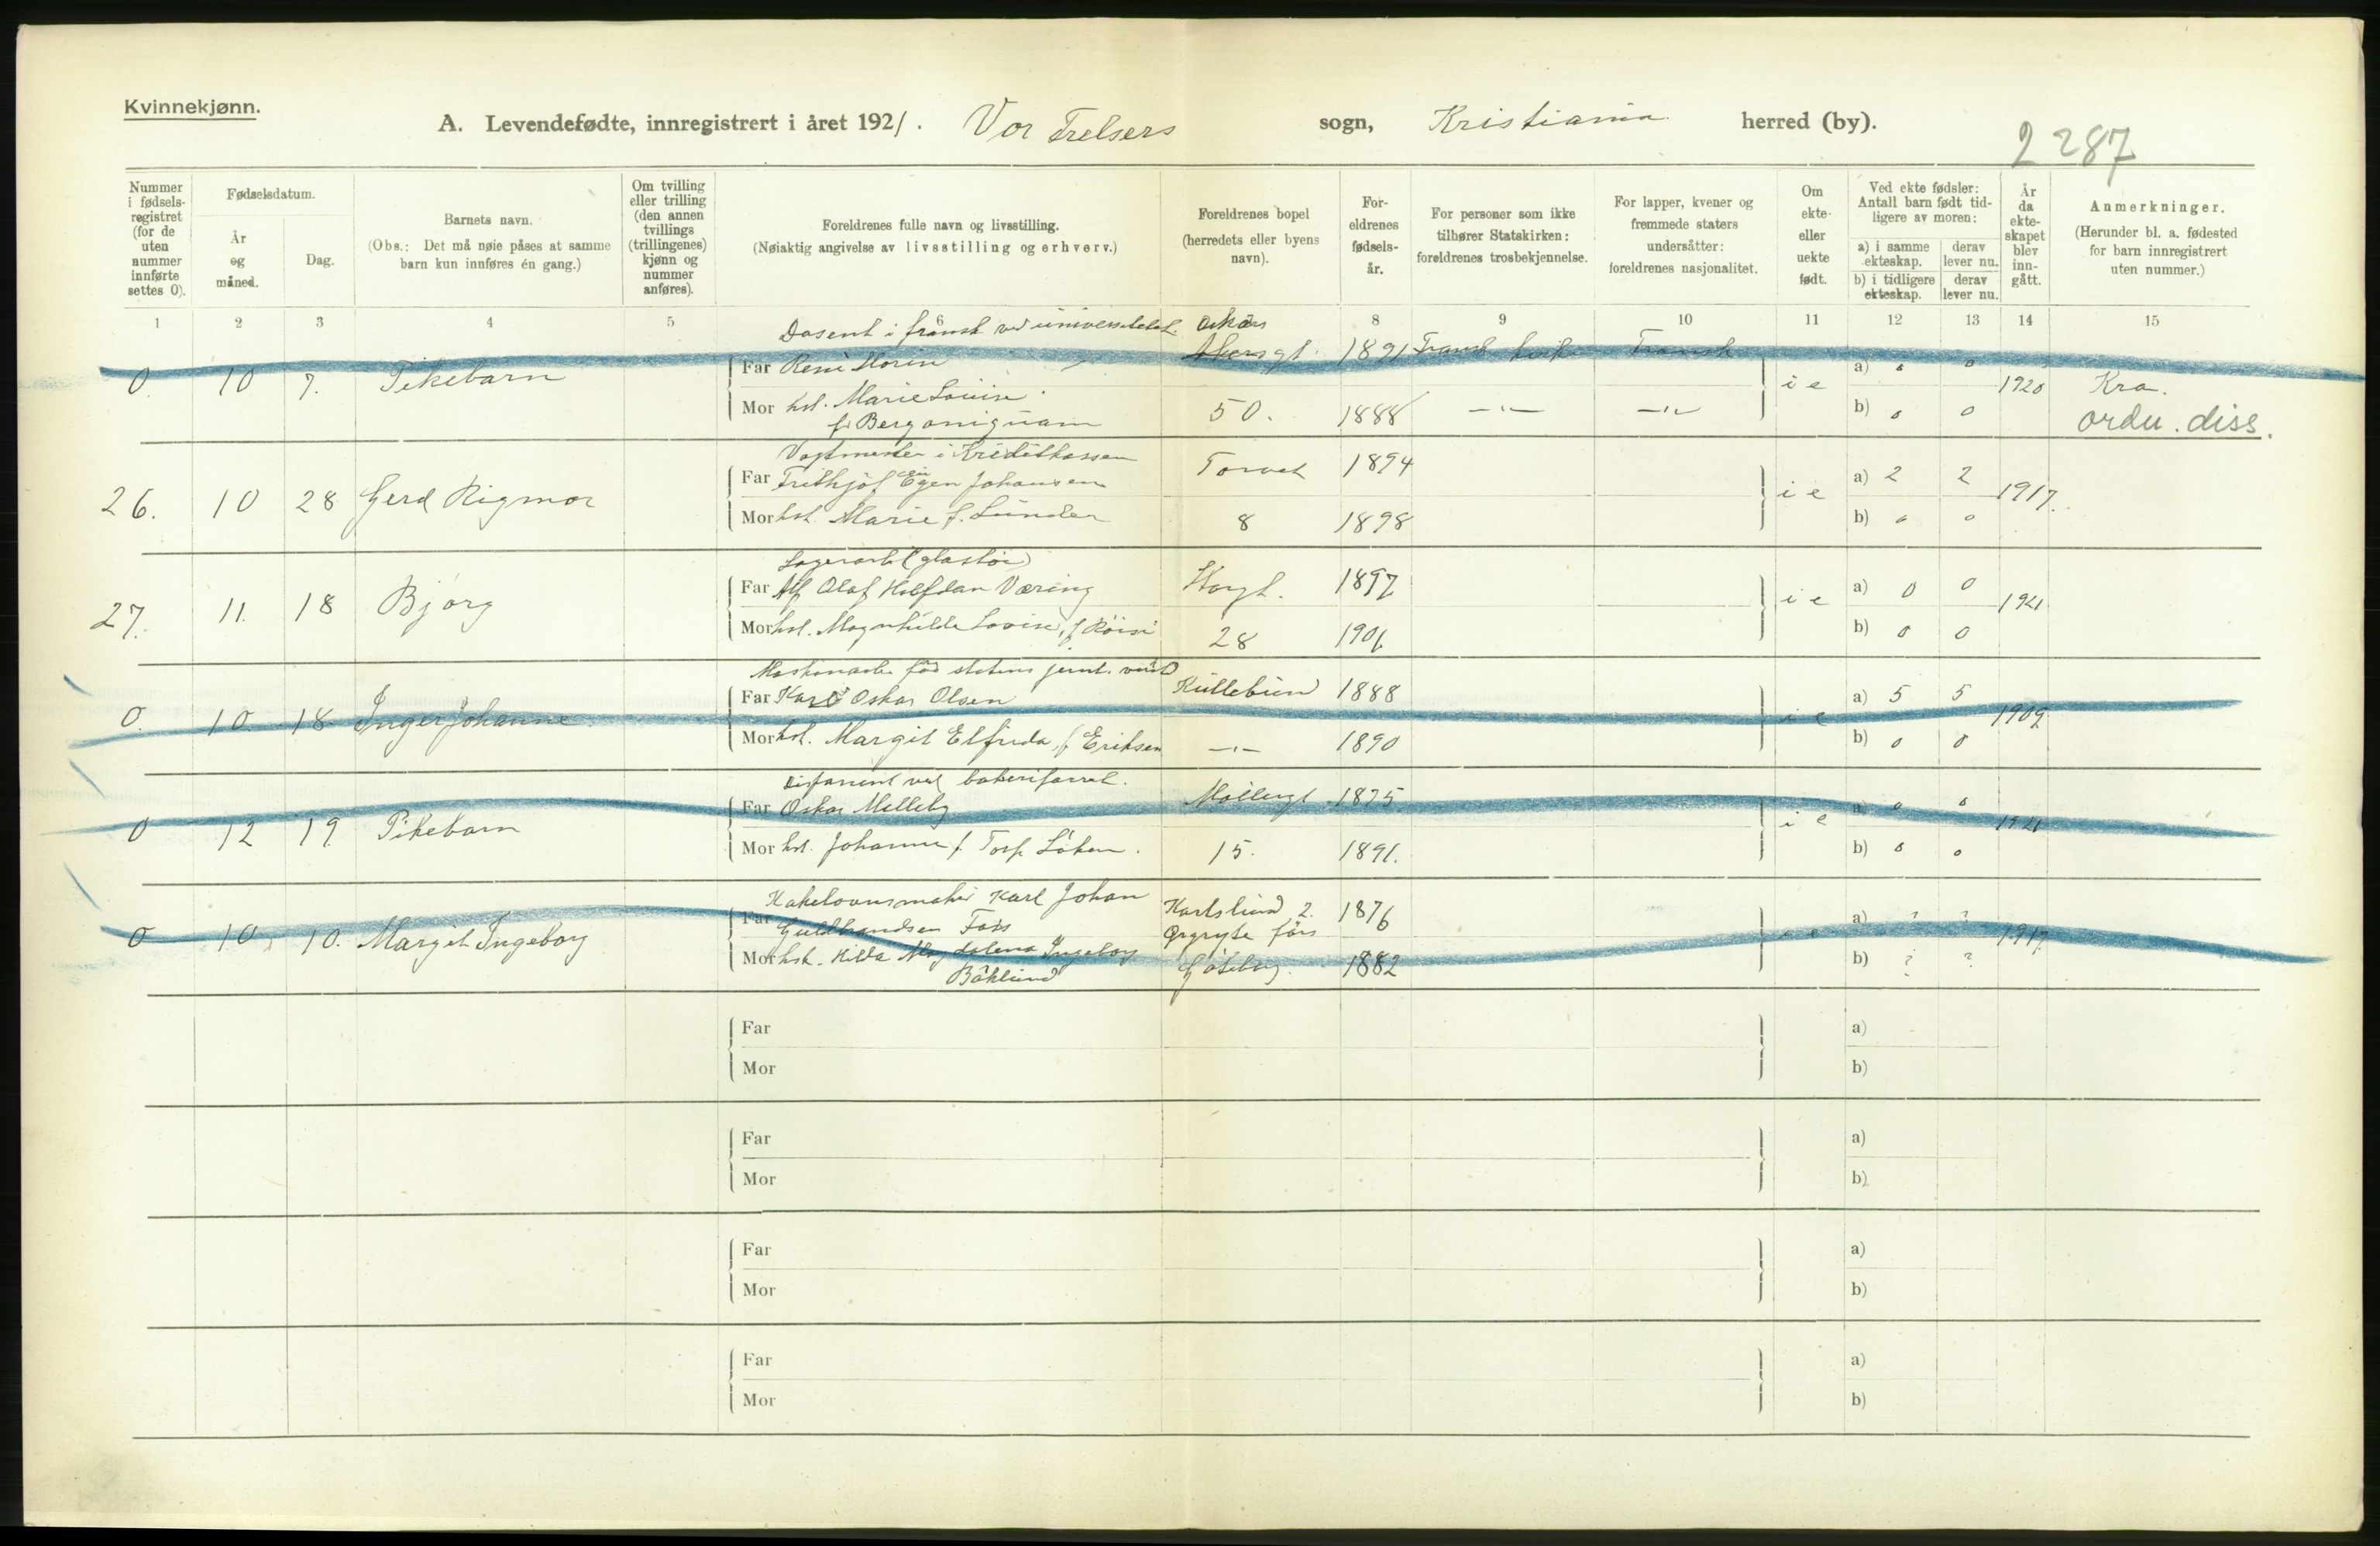 Kvinnekjønn.
A. Levendefødte, innregistrert i året 1921. Vor Frelsers sogn, Kristiania herred (by).
2287
Nummer i fødsels-registret (for de uten nummer innførte settes 0).
Fødselsdatum.
År og måned.
Dag.
Barnets navn.
(Obs.: Det må nøie påses at samme barn kun innføres én gang.)
Om tvilling eller trilling (den annen tvillings (trillingenes) kjønn og nummer anføres).
Foreldrenes fulle navn og livsstilling.
(Nøiaktig angivelse av livsstilling og erhverv.)
Foreldrenes bopel (herredets eller byens navn).
For-eldrenes fødsels-år.
For personer som ikke tilhører Statskirken: foreldrenes trosbekjennelse.
For lapper, kvener og fremmede staters undersåtter: foreldrenes nasjonalitet.
Om ekte- eller uekte født.
Ved ekte fødsler: Antall barn født tid-ligere av moren:
a) i samme ekteskap. derav lever nu.
b) i tidligere ekteskap. derav lever nu.
År da ekte-skapet blev inn-gått.
Anmerkninger.
(Herunder bl. a. fødested for barn innregistrert uten nummer.)
1 2 3 4 5 6 8 9 10 11 12 13 14 15
Dosent i fransk ved universitetet
0. 10 7. Pikebarn Far René Morin Akersgt. 1891 Fransk Fransk i e a) 0 0 1920 Kra.
Mor hst. Marie Louise 50. 1888 —"— —"— b) 0 0 ordn. diss.
f.
Vaktmester i Kreditkassen
26. 10 28 Gerd Rigmor Far Frithjof Egen Johansen Torvet 1894 i e a) 2 2 1917.
Mor hst. Marie f. Lunder 8 1898 b) 0 0
Lagerarb. (glastøi)
27. 11. 18 Bjørg Far Alf Olaf Halfdan Væring 1897 i e a) 0 0 1921
Mor hst. Magnhilde Lovise, f. 28 1901 b) 0 0
0. 10. 18 Inger Johanne Far Karl Oskar Olsen Kullebund 1888 i e a) 5 5 1909
Mor hst. Margit Elfrida, f. Eriksen —"— 1890 b) 0 0
Disponent ved
0 12 19 Pikebarn Far Oskar Melleby Møllergt 1875 i e a) 0 0 1921
Mor hst. Johanne f. Torp Løken. 15. 1891. b) 0 0
Kakelovnsmaker Karl Johan Karlslund 2.
0 10 10. Margit Ingeborg Far Guldbrandsen Foss Ørgryte förs 1876 i e a) ? ? 1917
Mor hst. Hilda Magdalena Ingeborg Göteborg. 1882 b) ? ?
Bäklund
Far a)
Mor b)
Far a)
Mor b)
Far a)
Mor b)
Far a)
Mor b)